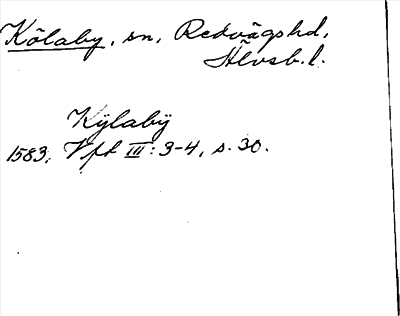 Kölaby, sn, Redvägshd,
Älvsb.l.
Kÿlabÿ
1583, Vft III:3-4, s. 30.